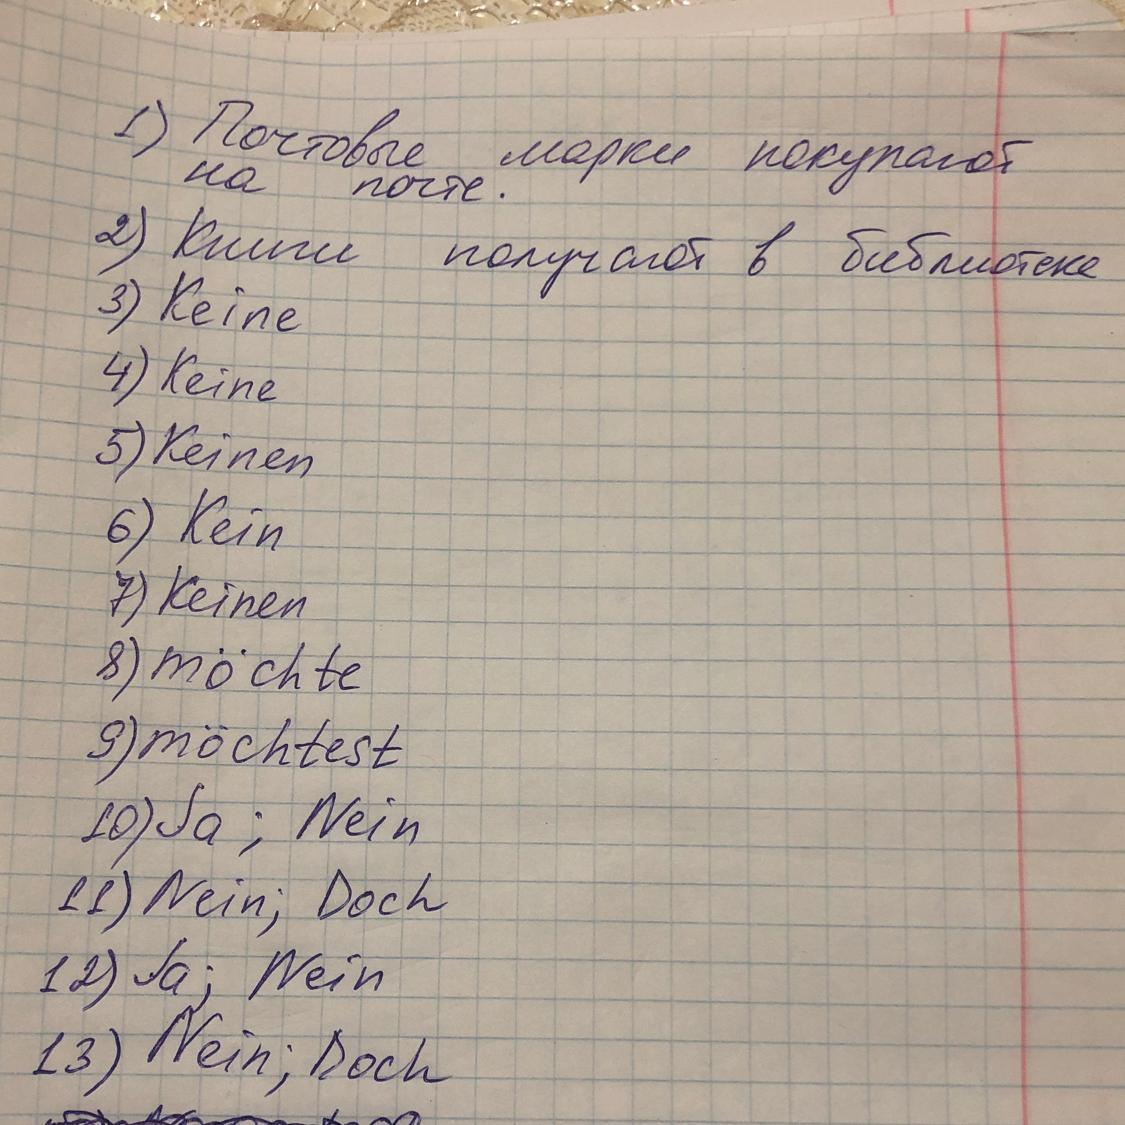 1) Почтовые марки покупают
на почте.
2) Книги получают в библиотеке
3) Keine
4) Keine
5) Keinen
6) Kein
7) Keinen
8) möchte
9) möchtest
10) Ja ; Nein
11) Nein; Doch
12) Ja; Nein
13) Nein; Doch